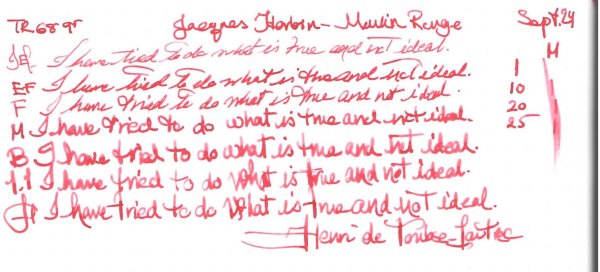 TR 68 gr Jacques Herbin - Moulin Rouge Sept. 24
M
I have tried to do what is true and not ideal.
EF I have tried to do what is true and not ideal. 1
F I have tried to do what is true and not ideal. 10
20
M I have tried to do what is true and not ideal. 25
B I have tried to do what is true and not ideal.
1.1 I have tried to do what is true and not ideal.
I have tried to do what is true and not ideal.
Henri de Toulouse-Lautrec